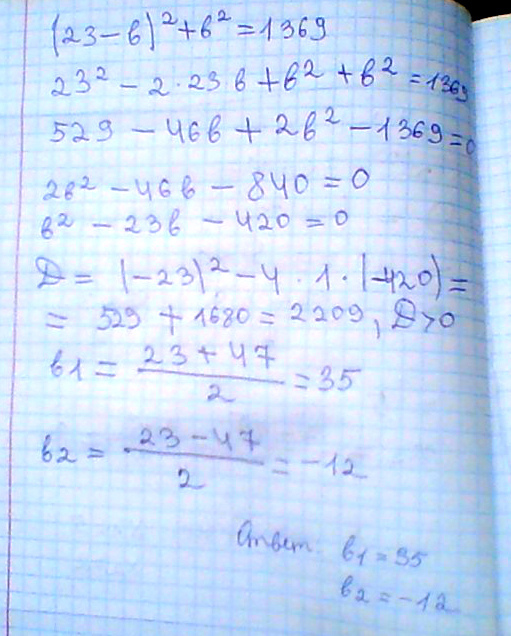 (23-в)²+в²=1369
23² - 2·23в + в² + в² = 1369
529 - 46в + 2в² - 1369 = 0
2в² - 46в - 840 = 0
в² - 23в - 420 = 0
D = (-23)² - 4·1·(-420) =
= 529 + 1680 = 2209, D>0
в1 = (23+47)/2 = 35
в2 = (23-47)/2 = -12
Ответ: в1 = 35
в2 = -12